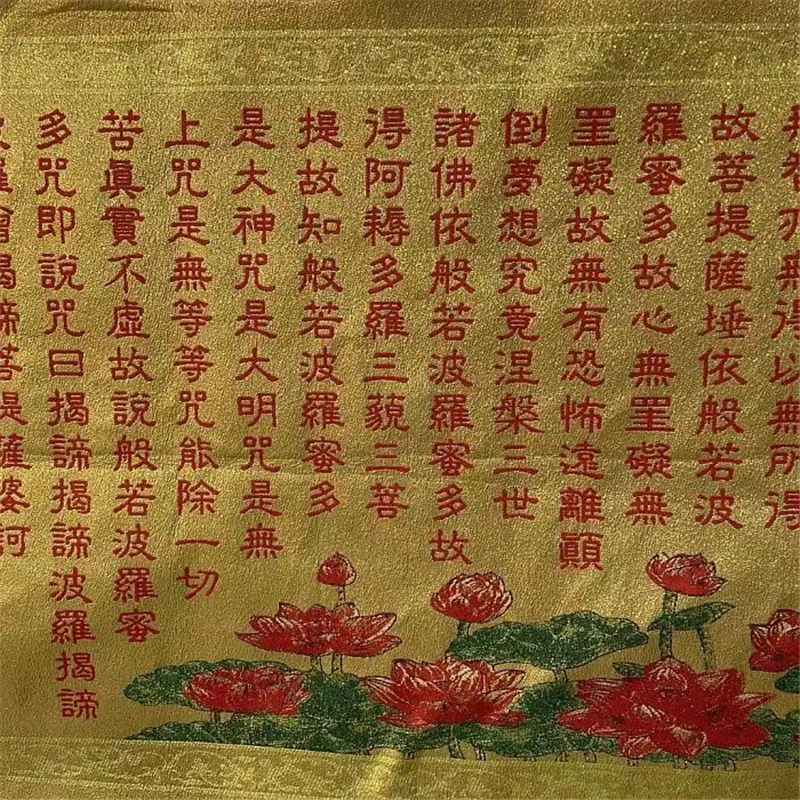 無智亦無得以無所得
故菩提薩埵依般若波
羅蜜多故心無罣礙無
罣礙故無有恐怖遠離顛
倒夢想究竟涅槃三世
諸佛依般若波羅蜜多故
得阿耨多羅三藐三菩
提故知般若波羅蜜多
是大神咒是大明咒是無
上咒是無等等咒能除一切
苦眞實不虛故說般若波羅蜜
多咒即說咒曰揭諦揭諦波羅揭諦
波羅僧揭諦菩提薩婆訶